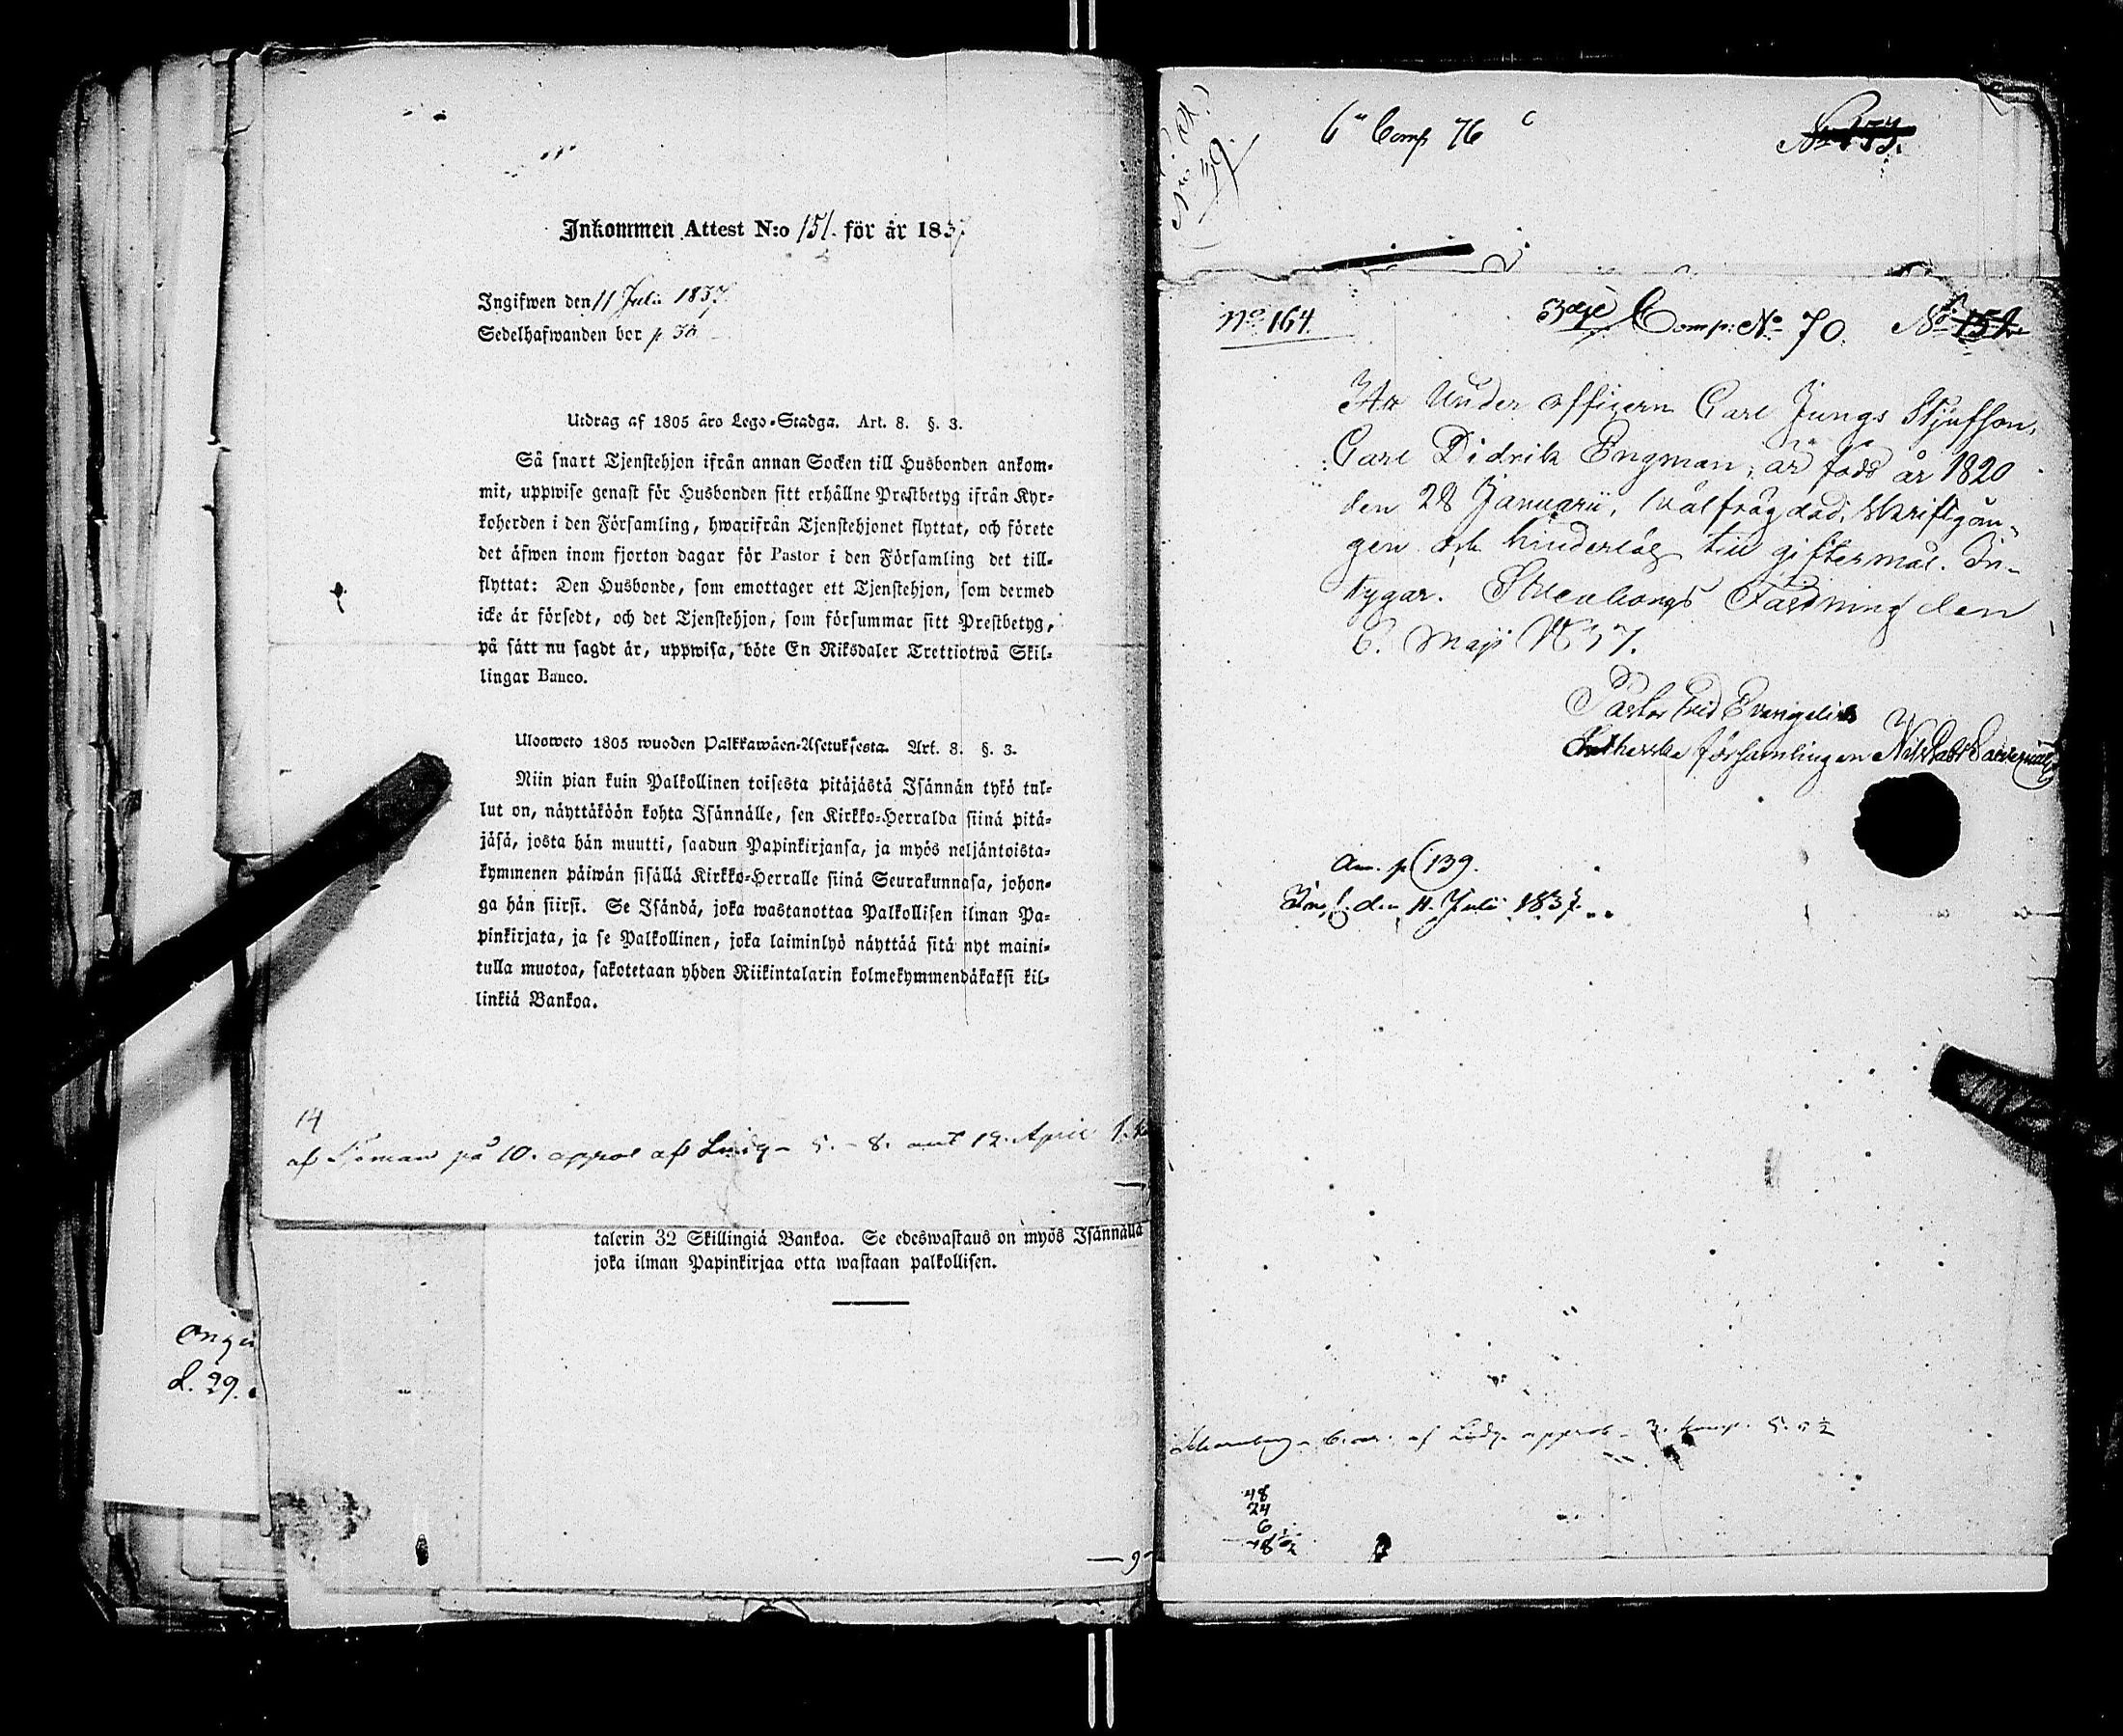 Inkommen Attest N:o 151. för år 1837
Ingifwen den 11 Julii 1837.
Sedelhafwanden bor p 30
Utdrag af 1805 åro Lego-Stadga. Art. 8. §. 3.
Så snart Tjenstehjon ifrån annan Socken till Husbonden ankom-
mit, uppwise genast för Husbonden sitt erhållne Prestbetyg ifrån Kyr-
koherden i den Församling, hwarifrån Tjenstehjonet flyttat, och förete
det äfwen inom fjorton dagar för Pastor i den Församling det till-
flyttat: Den Husbonde, som emottager ett Tjenstehjon, som dermed
icke är försedt, och det Tjenstehjon, som försummar sitt Prestbetyg,
på sätt nu sagdt är, uppwisa, böte En Riksdaler Trettiotwå Skil-
lingar Banco.
Ulosweto 1805 wuoden Palkkawäen-Asetuksesta. Art. 8. §. 3.
Niin pian kuin Palkollinen toisesta pitäjästä Isännän tykö tul-
lut on, näyttäköön kohta Isännälle, sen Kirkko-Herralda siinä pitä-
jäsä, josta hän muutti, saadun Papinkirjansa, ja myös neljäntoista-
kymmenen päiwän sisällä Kirkko-Herralle siinä Seurakunnasa, johon-
ga hän siirsi. Se Isändä, joka wastanottaa Palkollisen ilman Pa-
pinkirjata, ja se Palkollinen, joka laiminlyö näyttää sitä nyt maini-
tulla muotoa, sakotetaan yhden Riikintalarin kolmekymmendäkaksi kil-
linkiä Bankoa.
14
af på 10. af 5. - 8. 12. April
talerin 32 Skillingiä Bankoa. Se edeswastaus on myös Isännällä
joka ilman Papinkirjaa otta wastaan palkollisen.
d. 29.
6 Comp 76
No 153.
No 164.
3dje Comp: No 70. No 151
Att Under officern Carl Jungs Stjufson,
Carl Didrik Engman, är född år 1820
den 28 Januarii, wälfrägdad, Skriftgån-
gen och hinderlös till giftermål. In-
tygar. Fästning den
6. Maji 1837.
Pastor wid Evangelisk
Lutherska församlingen
An. p 139.
Ing. den 11. Julii 1837.
48
24
6